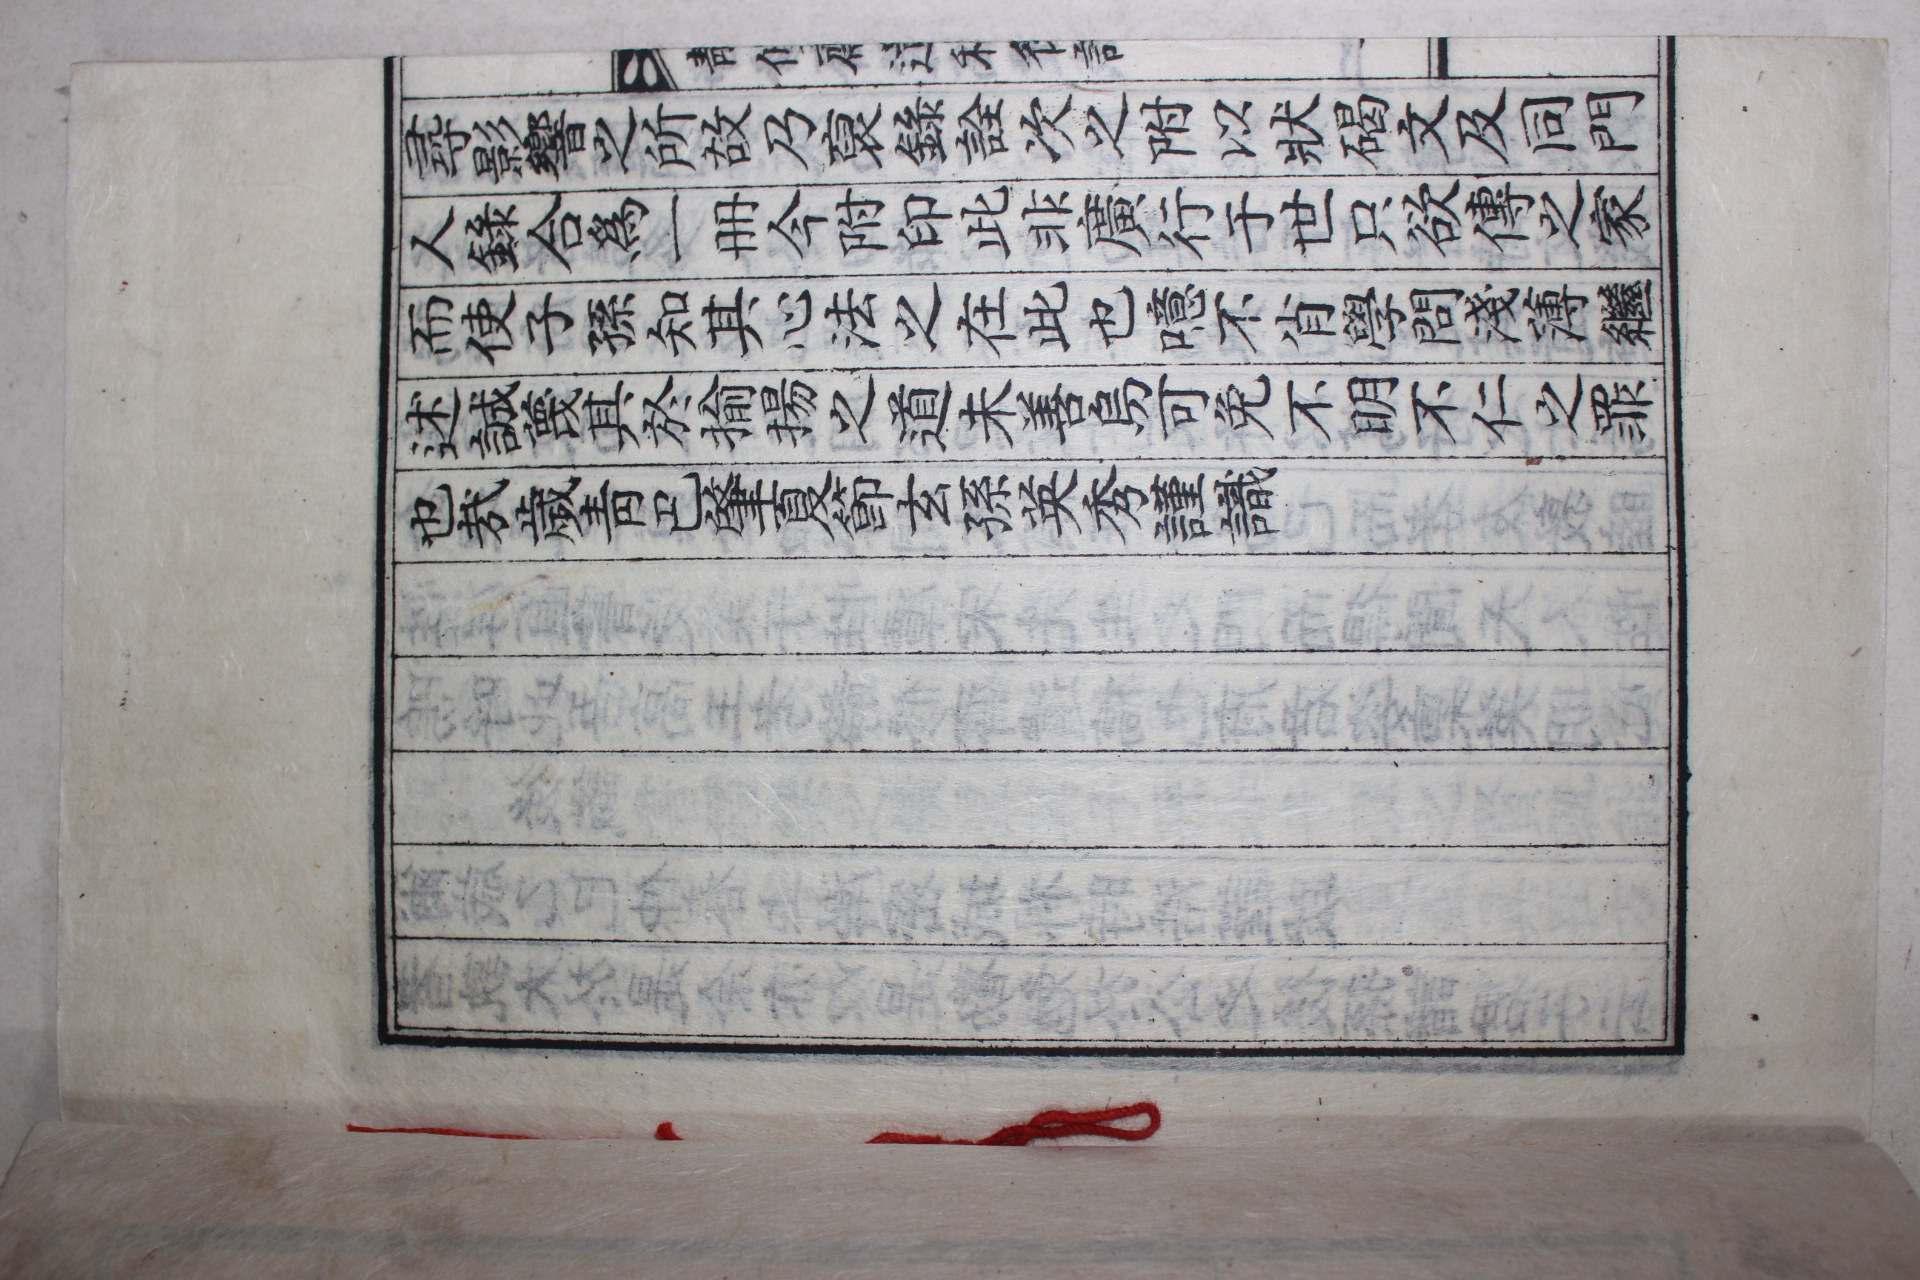 尋影響之所故乃裒錄詮次之附以狀碣文及同門
人錄合爲一冊今附印此非廣行于世只欲傳之家
而使子孫知其心法之在此也噫不肖學問淺薄繼
述誠蔑其於揄揚之道未善烏可免不明不仁之罪
也哉歲靑巴肇夏節玄孫英秀謹識